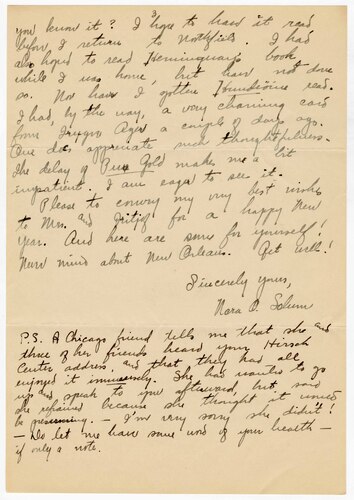 you know it? I hope to have it read
before I return to Northfield. I had
also hoped to read Hemingway's book
while I was home, but have not done
so. Nor have I gotten read.
I had, by the way, a very charming card
from Ager a couple of days ago.
One does appreciate such thoughtfulness.
The delay of Pure Gold makes me a bit
impatient. I am eager to see it.
Please to convey my very best wishes
to Mrs. and for a happy New
Year. And here are some for yourself!
Never mind about New Orleans. Get well!
Sincerely yours,
Nora O. Solum
P.S. A Chicago friend tells me that she and
three of her friends heard your Hirsch
Center address, and that they had all
enjoyed it immensely. She had wanted to go
up and speak to you afterward, but said
she refrained because she thought it would
be presuming. — I'm very sorry she didn't!
— Do let me have some word of your health —
if only a note.